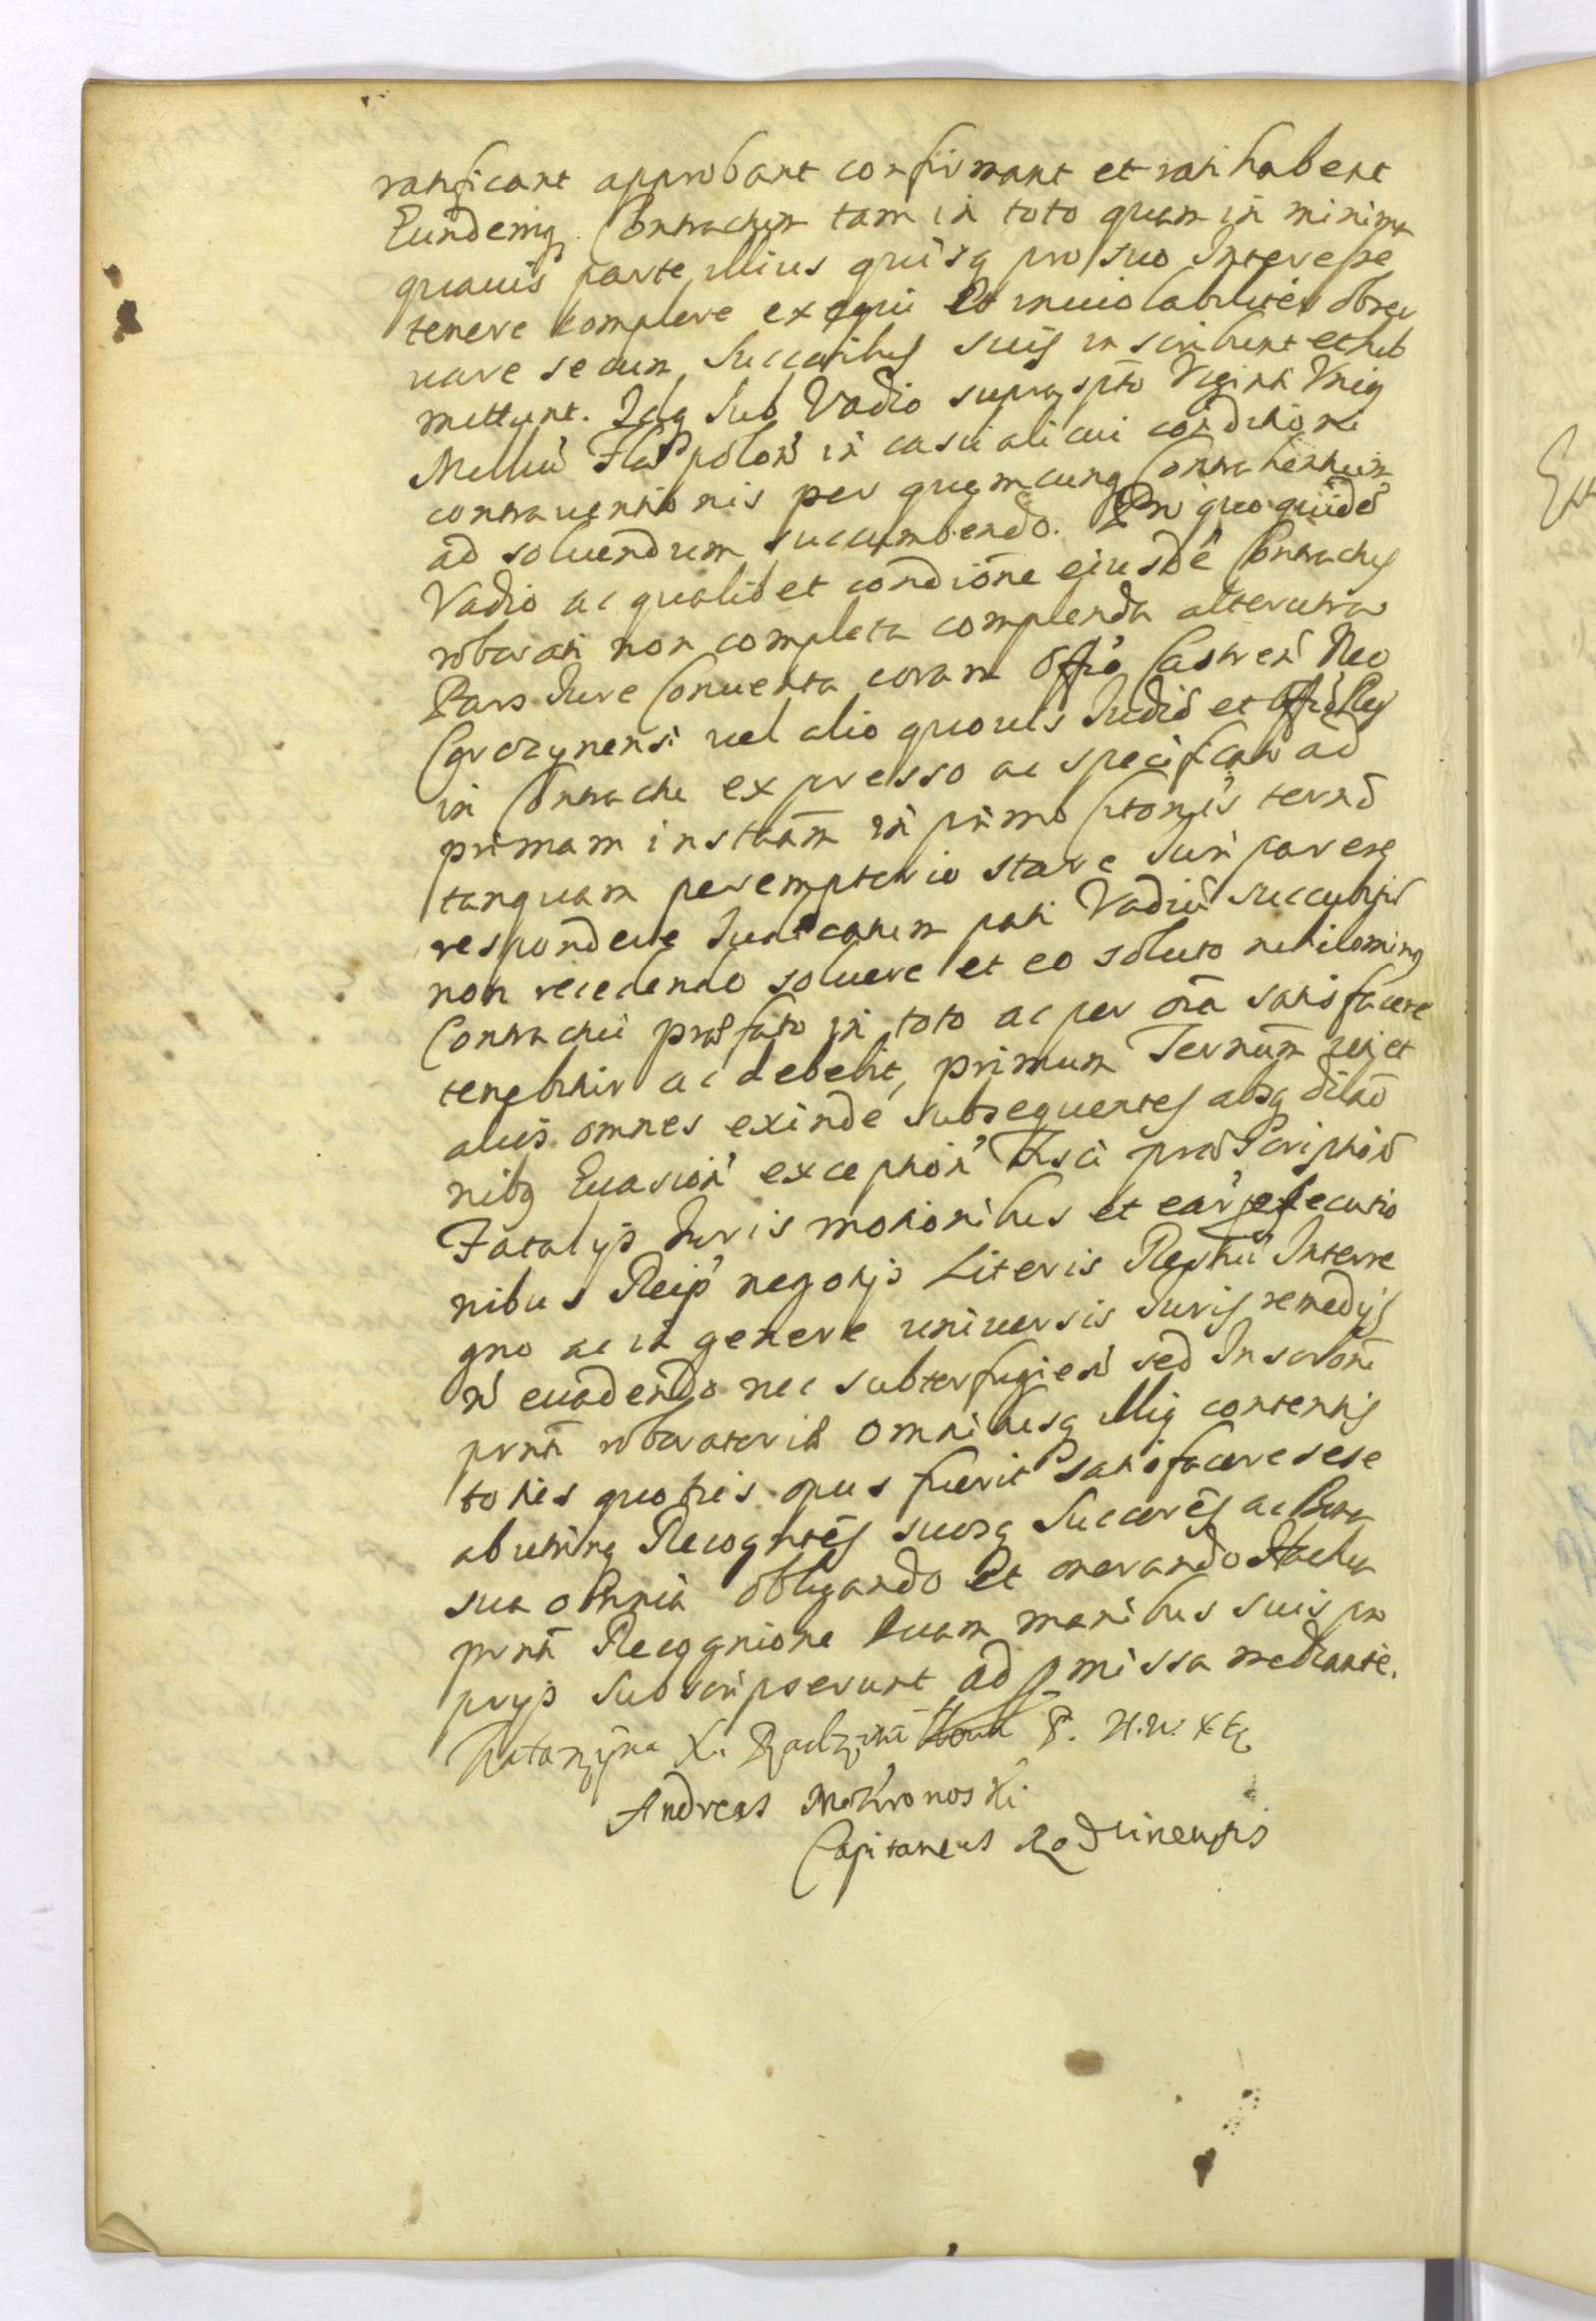 ratificant approbant confirmant et ratihabent
Eundemq Contractum tam in toto quam in minima
quauis parte illius quisq pro suo Interesse
tenere complere exequi et inuiolabiliter obser
uare se cum Succoribus suis inscribunt et sub
mittunt. Idq sub Vadio suprascpto Viginti Vnius
Milliu Flor polon in casu alicui conditioni
contrauentionis per quemcunq Contrahentium
ad soluendum succumbendo. Pro quo quidē
Vadio ac qualibet condīone eiusdē Contractus
roborati non completa complenda alterutra
Pars Iure Conuenta coram Offō Castren Neo
Corczynensi uel alio quouis Iudiō et Offō Regni
in Contractu expresso ac specificato ad
primam instaām in primo Citonis termō
tanquam peremptorio stare Iuri parereq
respondere Iudicatum pati Vadiū succubitū
non recedendo soluere et eo soluto nihilominus
Contractui praefato in toto ac per oīa satisfacere
tenebitur ac debebit, primum Termūm uti et
alios omnes exinde subsequentes absq dilaō
nibq Euasion exception Fisci praescription
Fatalijs Iuris motionibus et ear executio
nibus Reip negotijs Literis Regni Interre
gno ac in genere uniuersis Iuris remedijs
n euadendo nec subterfugien sed Inscrōni
prnti roboratoria omnibusq illius contentis
toties quoties opus fuerit satisfacere sese
abutrinq Recognēs suosq Succorēs ac Bona
sua omnia obligando et onerando
prnti Recognione quam manibus suis pro
prijs subscripserunt ad pmissa mediante.
Katarzyna X. P. H. W. X. L.
Andreas Mokronoski
Capitaneus